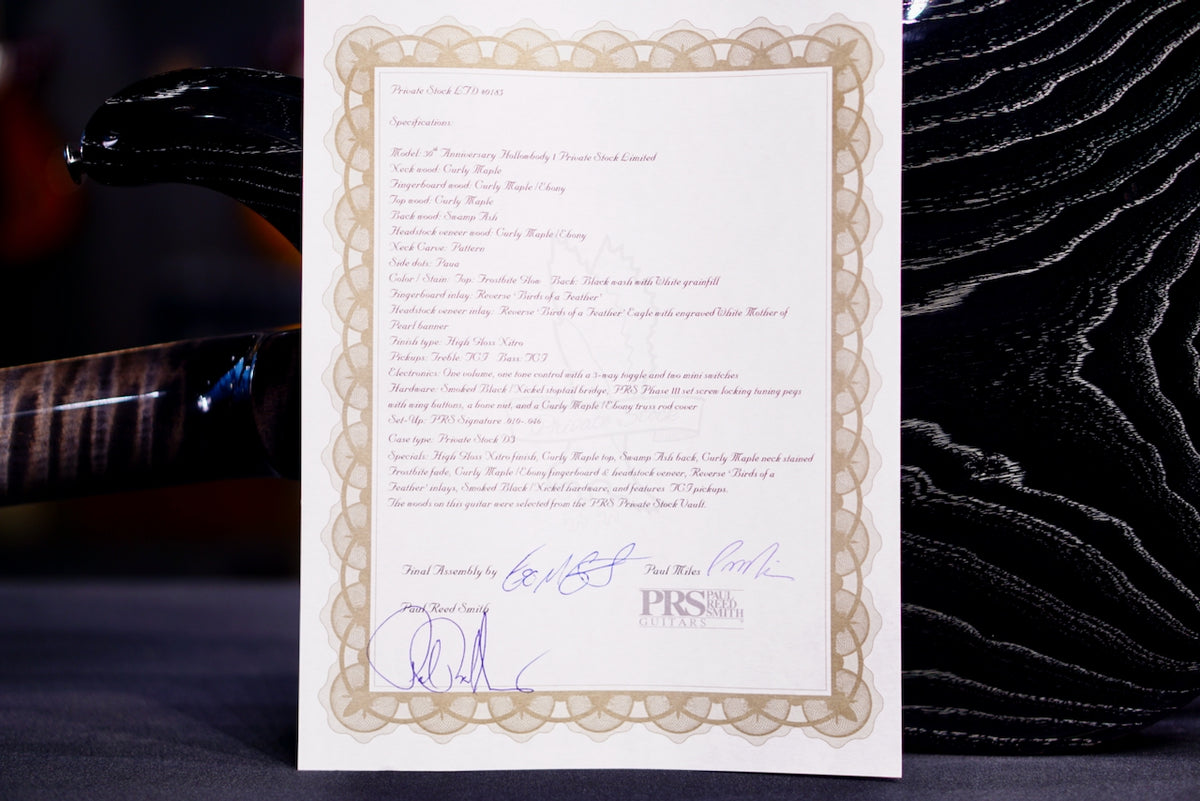 Private Stock LTD #9185
Specifications:
Model: 30th Anniversary Hollowbody I Private Stock Limited
Neck wood: Curly Maple
Fingerboard wood: Curly Maple/Ebony
Top wood: Curly Maple
Back wood: Swamp Ash
Headstock veneer wood: Curly Maple/Ebony
Neck Carve: Pattern
Side dots: Paua
Color / Stain: Top: Frostbite Glow Back: Black wash with White grainfill
Fingerboard inlay: Reverse 'Birds of a Feather'
Headstock veneer inlay: Reverse 'Birds of a Feather' Eagle with engraved White Mother of
Pearl banner
Finish type: High Gloss Nitro
Pickups: Treble: TCI Bass: TCI
Electronics: One volume, one tone control with a 3-way toggle and two mini switches
Hardware: Smoked Black/Nickel stoptail bridge, PRS Phase III set screw locking tuning pegs
with wing buttons, a bone nut, and a Curly Maple/Ebony truss rod cover
Set-Up: PRS Signature .010-.046
Case type: Private Stock D3
Specials: High Gloss Nitro finish, Curly Maple top, Swamp Ash back, Curly Maple neck stained
Frostbite fade, Curly Maple/Ebony fingerboard & headstock veneer, Reverse 'Birds of a
Feather' inlays, Smoked Black/Nickel hardware, and features TCI pickups.
The woods on this guitar were selected from the PRS Private Stock Vault.
Private Stock
Final Assembly by Paul Miles
Paul Reed Smith
PRS PAUL REED SMITH
GUITARS